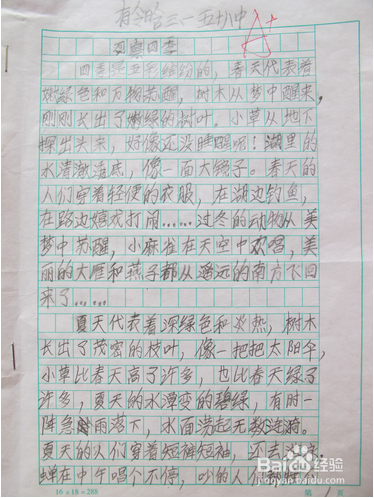 三一五十中
A+
观察四季
四季是五彩缤纷的，春天代表着
嫩绿色和万物苏醒，树木从梦中醒来，
刚刚长出了嫩绿的树叶。小草从地下
探出头来，好像还没睡醒呢！湖里的
水清澈透底，像一面大镜子。春天的
人们穿着轻便的衣服，在湖边钓鱼，
在路边嬉戏打闹……过冬的动物从美
梦中苏醒，小麻雀在天空中欢唱，美
丽的大雁和燕子都从遥远的南方飞回
来了……
夏天代表着深绿色和炎热，树木
长出了茂密的枝叶，像一把把太阳伞，
小草比春天高了许多，也比春天绿了
许多，夏天的水潭变的碧绿，有时一
阵急雨落下，水面荡起无数涟漪。
夏天的人们穿着短裤短袖，还去
蝉在中午唱个不停，吵的人们都睡
16×18=288
第 1 页
Baidu经验
jingyan.baidu.com